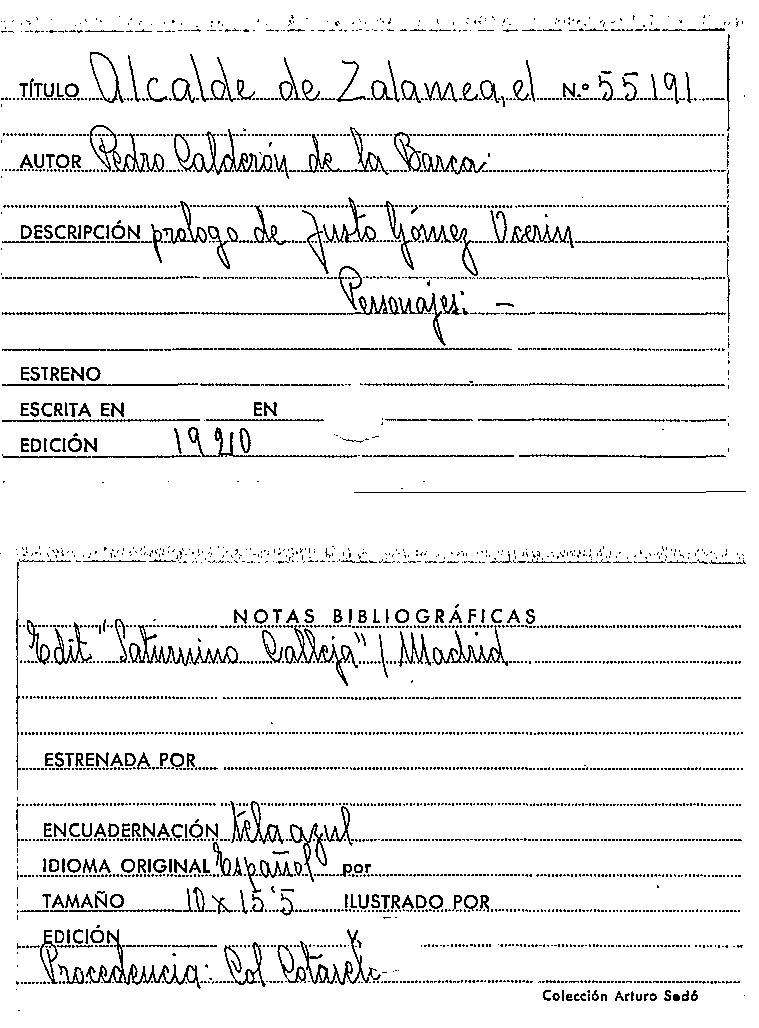 TÍTULO Alcalde de Zalamea, el N.º 55191
AUTOR Pedro Calderón de la Barca.
DESCRIPCIÓN prologo de Justo Gómez Ocerin
Personajes: —
ESTRENO
ESCRITA EN EN
EDICIÓN 1920
NOTAS BIBLIOGRÁFICAS
Edit "Saturnino Calleja" / Madrid
ESTRENADA POR
ENCUADERNACIÓN tela azul
IDIOMA ORIGINAL Español por
TAMAÑO 10 x 15'5 ILUSTRADO POR
EDICIÓN Y.
Procedencia: Col Cotarelo
Colección Arturo Sedó